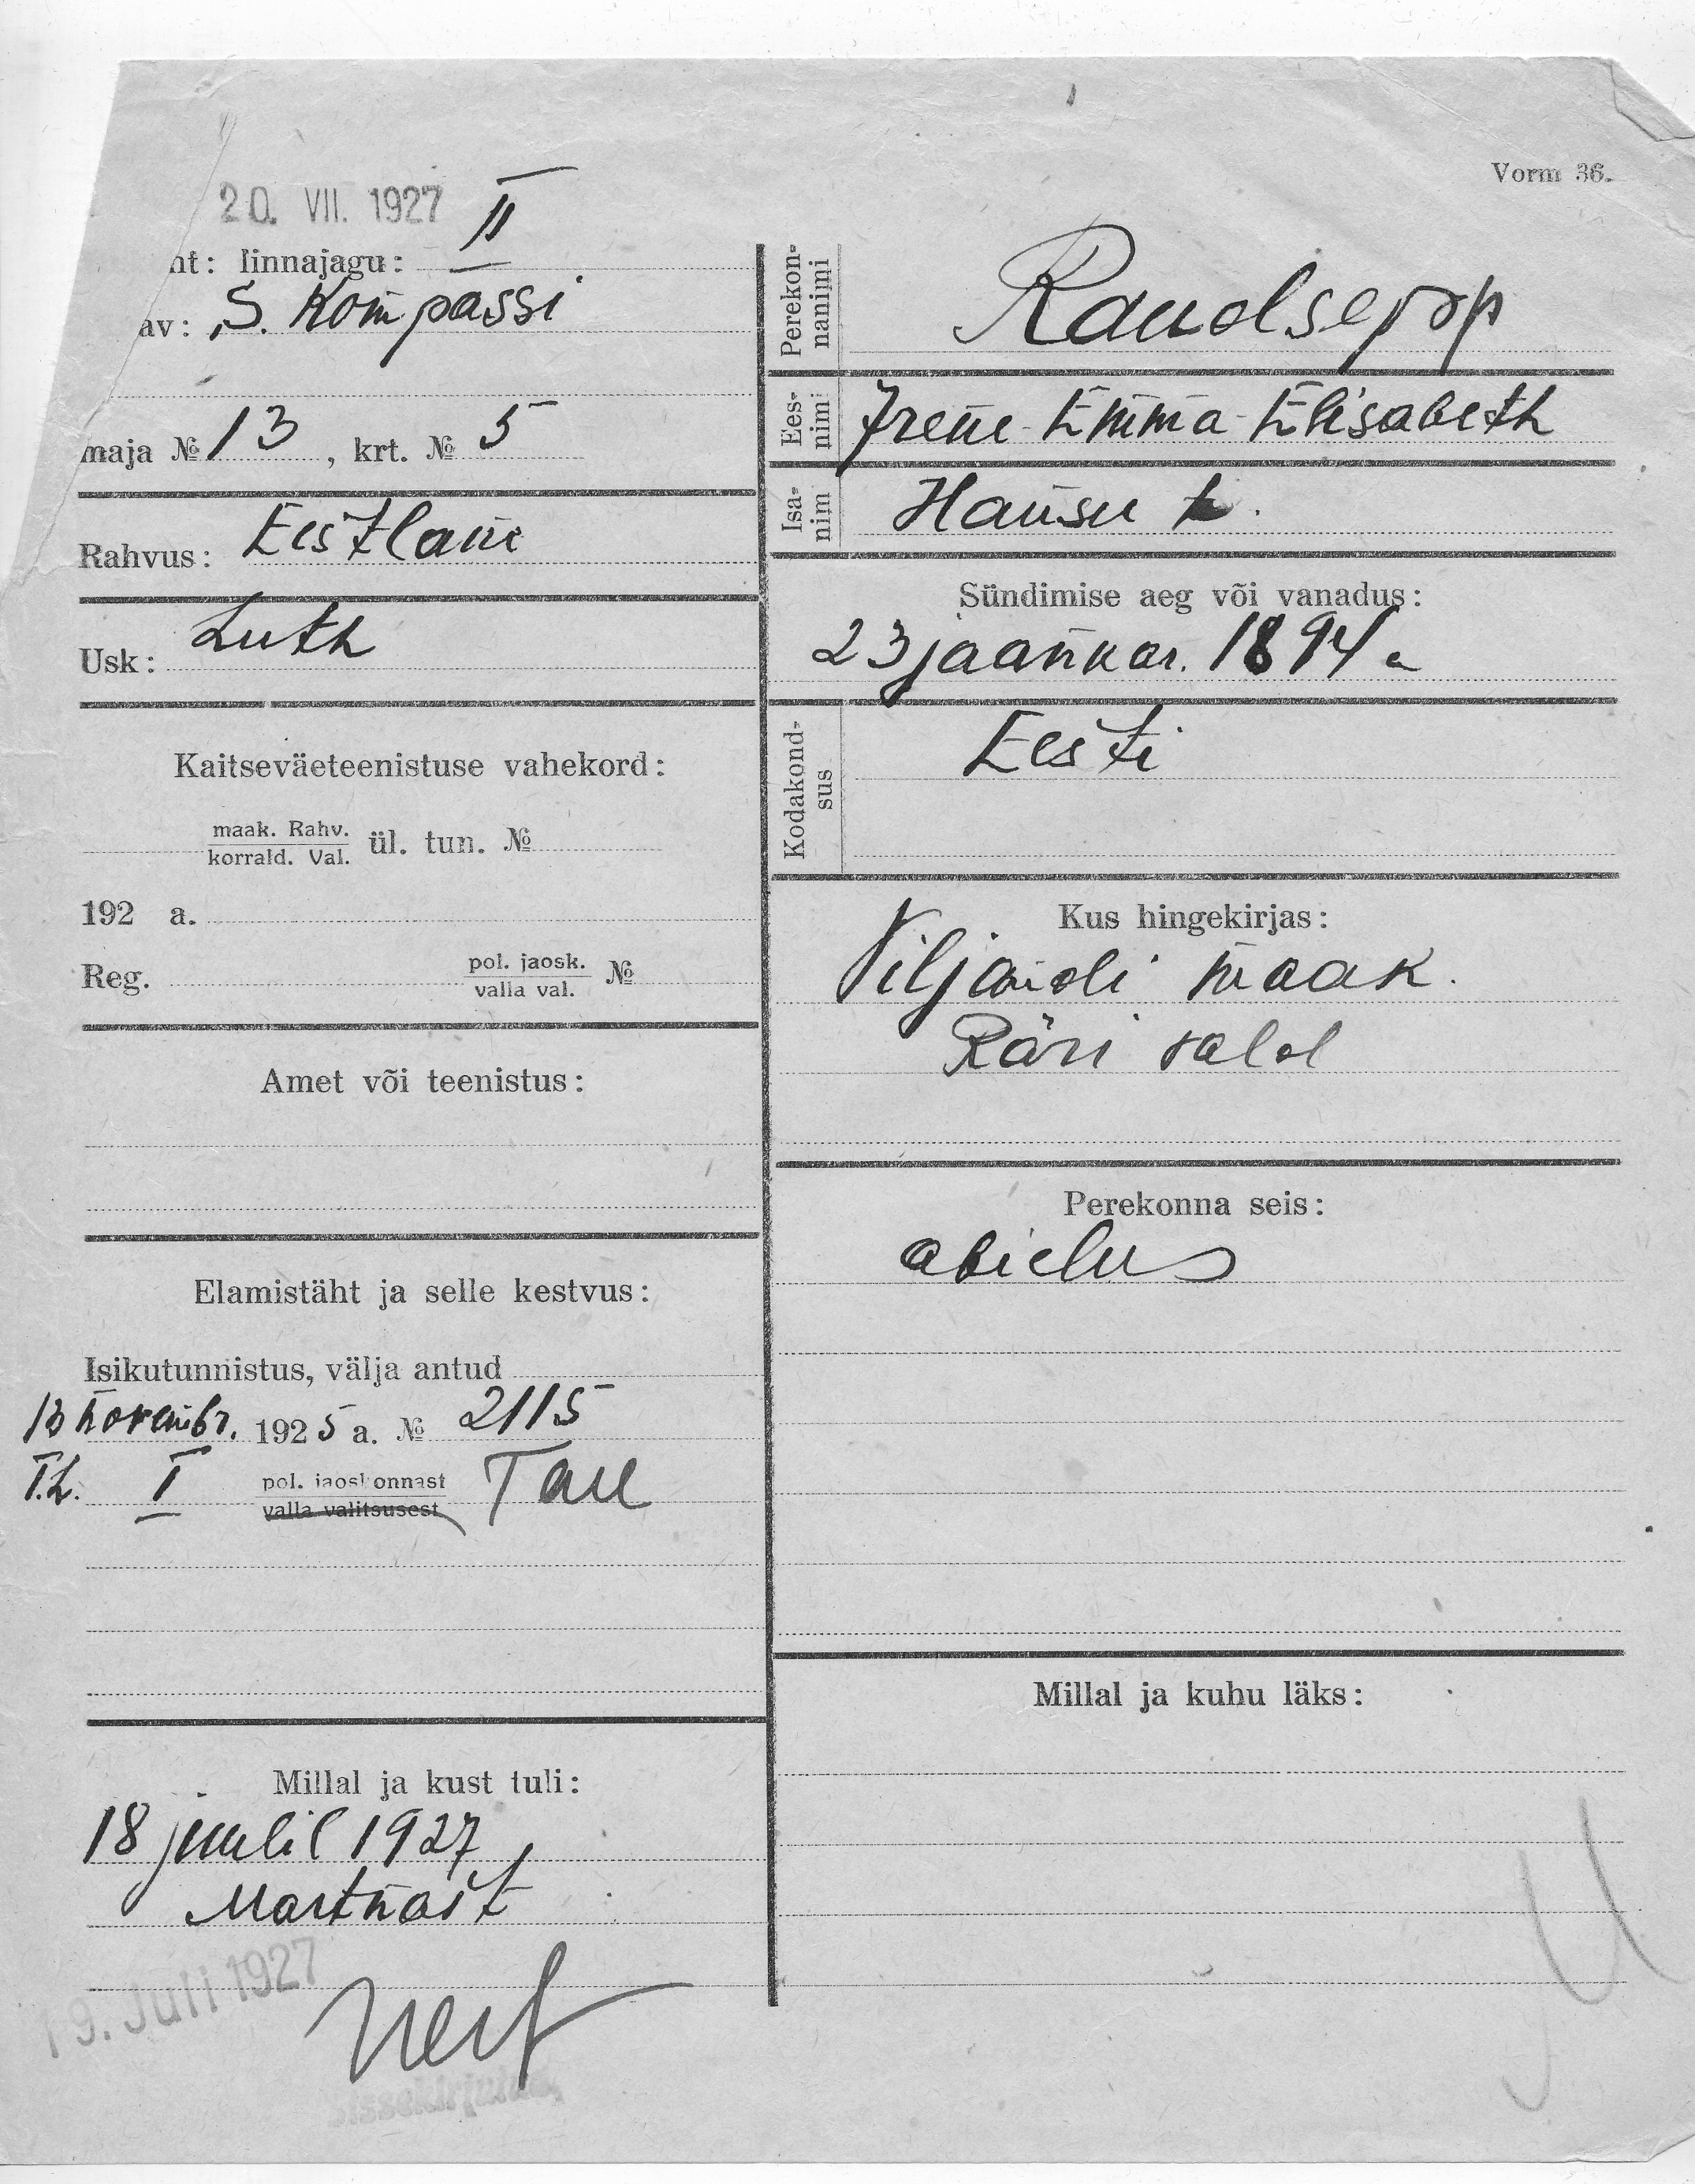 Vorm 36.
20. VII. 1927
nt: linnajagu: II
av: S. Kompassi
maja № 13, krt. № 5
Rahvus: Eestlane
Usk: Luth
Kaitseväeteenistuse vahekord:
maak. Rahv.
korrald. Val. ül. tun. №
192 a.
Reg. pol. jaosk.
valla val. №
Amet või teenistus:
Elamistäht ja selle kestvus:
Isikutunnistus, välja antud
13 novembr. 1925 a. № 2115
T.L. I pol. jaoskonnast
valla valitsusest
Millal ja kust tuli:
18 juulil 1927
Martnast
19. Juli 1927
Perekonnanimi Raudsepp
Eesnimi Irene-Emma-Elisabeth
Isanim Hansu t.
Sündimise aeg või vanadus:
23 jaanuar. 1894 a
Kodakondsus Eesti
Kus hingekirjas:
Viljandi maak.
vald
Perekonna seis:
abielus
Millal ja kuhu läks: